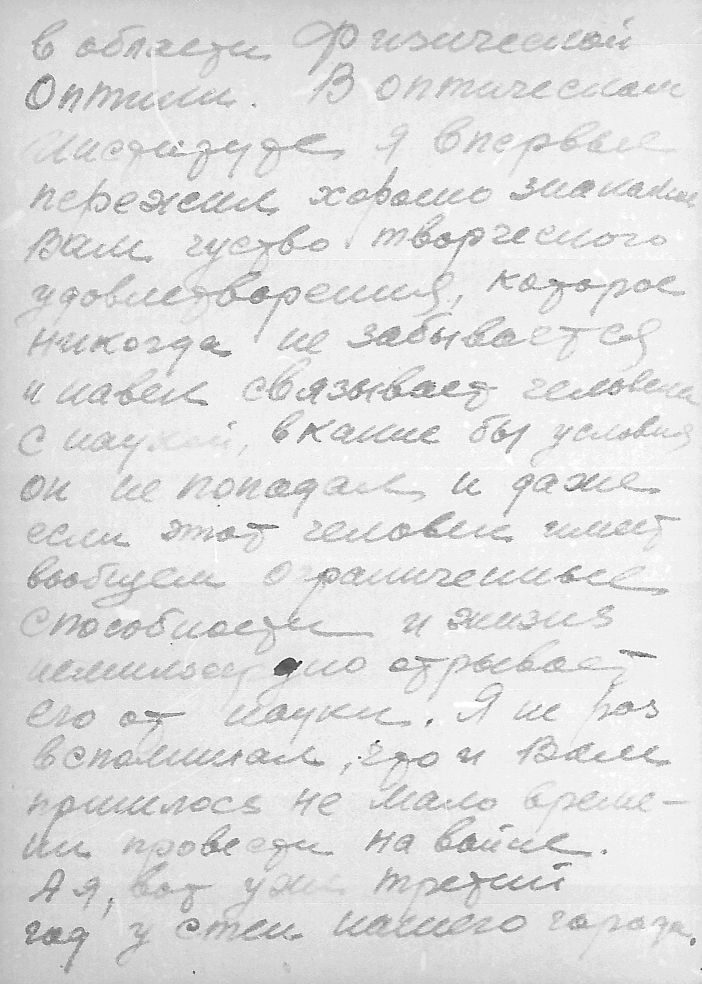 в области Физической
Оптики. В оптическом
институте я впервые
пережил хорошо знакомое
Вам чуство творческого
удовлетворения, которое
никогда не забывается
и навек связывает человека
с наукой, в какие бы условия
он не попадал и даже
если этот человек имеет
вообщем ограниченные
способности и жизнь
немилосердно отрывает
его от науки. Я не раз
вспоминал, что и Вам
пришлось не мало време-
ни провести на войне.
А я, вот уже третий
год у стен нашего города.